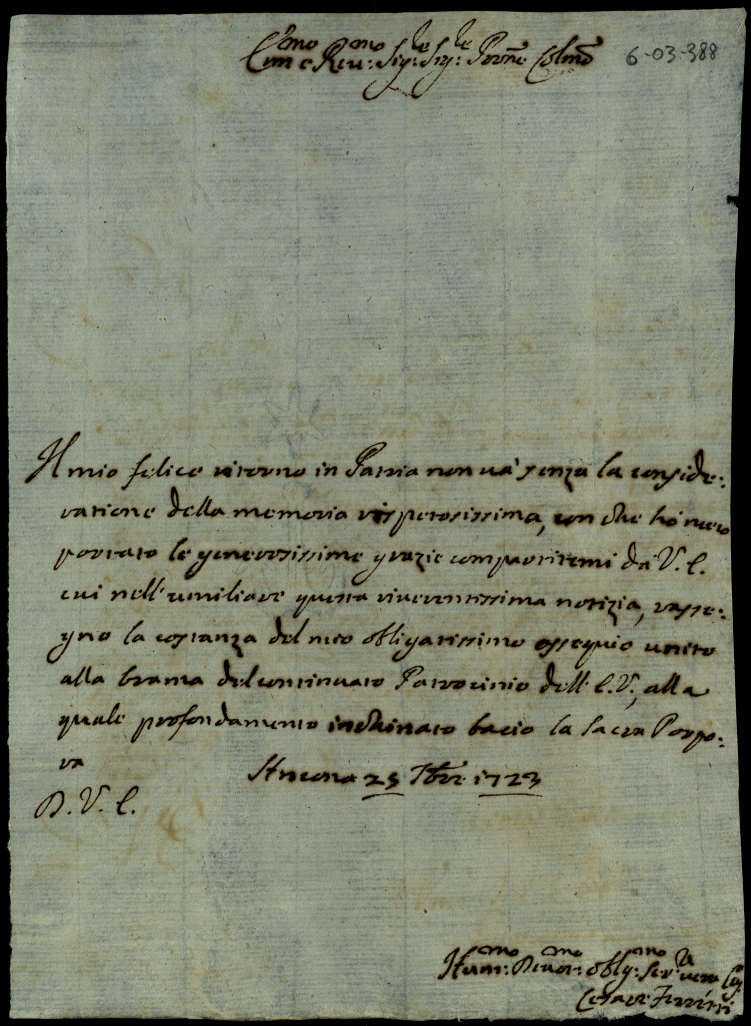 Em̃o e Reu:mo Sig:re Sig:re Pro͠ne Col͠mo 6-03-388
Il mio felice ritorno in Patria non và senza la conside:
ratione della memoria rispetosissima, con che hò meco
portato le generosissime grazie compartitemi dà V. E.
cui nell'umiliare questa riverentissima notizia, rasse:
gno la costanza del mio obligatissimo ossequio unito
alla brama del continuato Patrocinio dell'E. V., alla
quale profondamente inchinato bacio la Sacra Porpo:
ra Ancona 25 7bre 1723
D. V. E.
Hum:mo Deuot:mo Oblig:mo Ser:re
Cesare